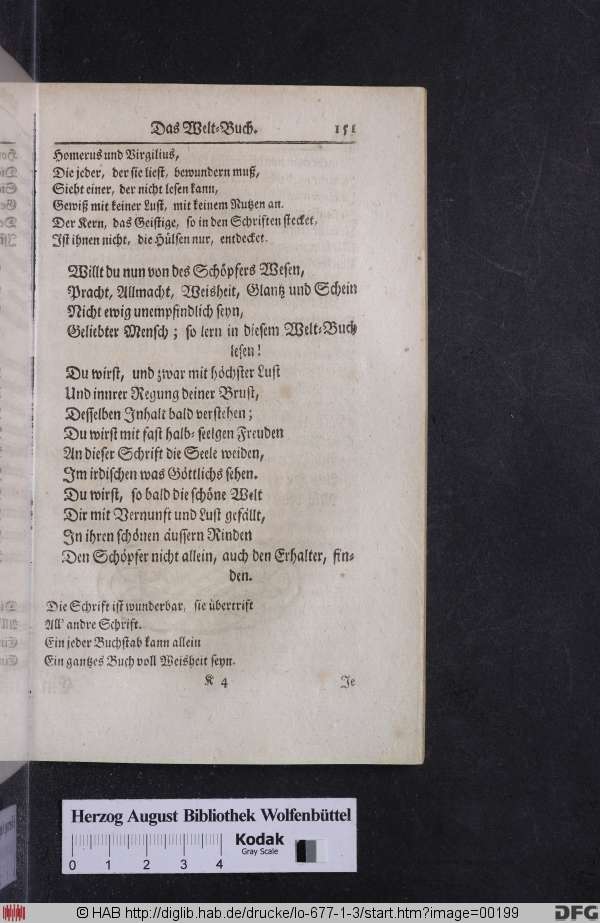 Das Welt-Buch. 151
Homerus und Virgilius,
Die jeder, der sie liest, bewundern muß,
Sieht einer, der nicht lesen kann,
Gewiß mit keiner Lust, mit keinem Nutzen an.
Der Kern, das Geistige, so in den Schriften stecket,
Ist ihnen nicht, die Hülsen nur, entdecket.
Willt du nun von des Schöpfers Wesen,
Pracht, Allmacht, Weisheit, Glantz und Schein
Nicht ewig unempfindlich seyn,
Geliebter Mensch; so lern in diesem Welt-Buch
lesen!
Du wirst, und zwar mit höchster Lust
Und innrer Regung deiner Brust,
Desselben Inhalt bald verstehen;
Du wirst mit fast halb-seelgen Freuden
An dieser Schrift die Seele weiden,
Im irdischen was Göttlichs sehen.
Du wirst, so bald die schöne Welt
Dir mit Vernunft und Lust gefällt,
In ihren schönen äussern Rinden
Den Schöpfer nicht allein, auch den Erhalter, fin-
den.
Die Schrift ist wunderbar, sie übertrift
All' andre Schrift.
Ein jeder Buchstab kann allein
Ein gantzes Buch voll Weisheit seyn.
K 4 Je
Herzog August Bibliothek Wolfenbüttel
Kodak
Gray Scale
0 1 2 3 4
© HAB http://diglib.hab.de/drucke/lo-677-1-3/start.htm?image=00199
DFG